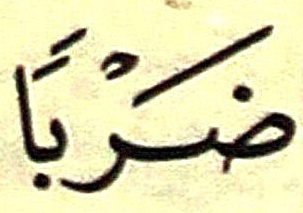 ضَرْبًا